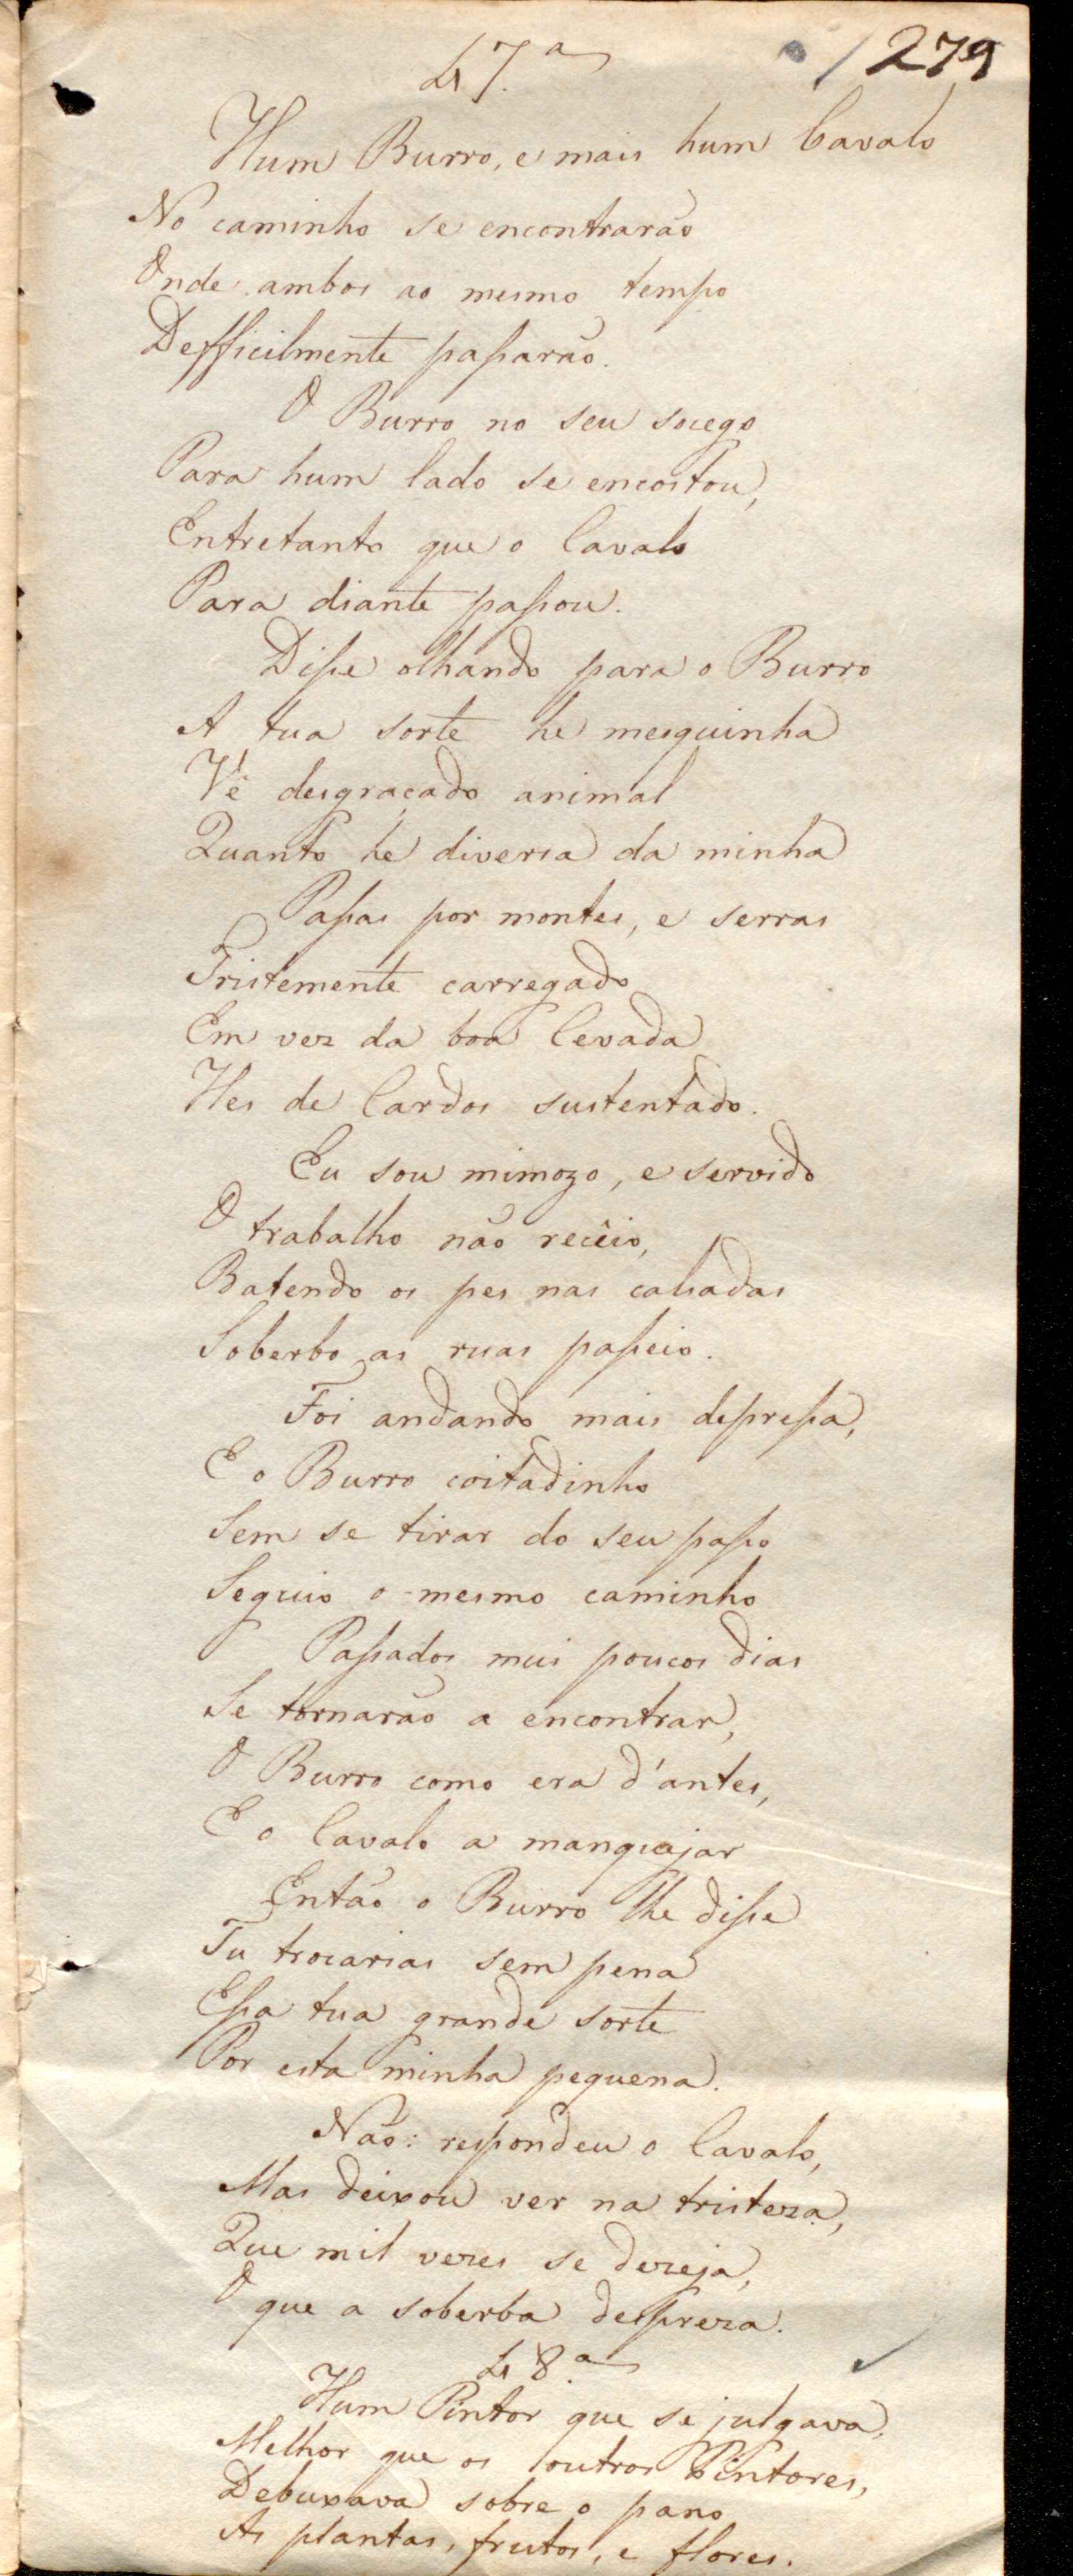 47.ª
279
Hum Burro, e mais hum Cavalo
No caminho se encontrarão
Onde ambos ao mesmo tempo
Defficilmente paſsarão.
O Burro no seu socego
Para hum lado se encostou,
Entretanto que o Cavalo
Para diante paſsou.
Diſse olhando para o Burro
A tua sorte he mesquinha
Vê desgraçado animal
Quanto he diversa da minha
Paſsas por montes, e serras
Tristemente carregado
Em vez da boa Cevada
Hes de Cardos sustentado.
Eu sou mimozo, e servido
O trabalho não recêio,
Batendo os pes nas calsadas
Soberbo as ruas paſseio.
Foi andando mais depreſsa,
E o Burro coitadinho
Sem se tirar do seu paſso
Seguio o mesmo caminho
Paſsados mui poucos dias
Se tornarão a encontrar,
O Burro como era d'antes,
E o Cavalo a manquejar
Então o Burro lhe diſse
Tu trocarias sem pena
Eſsa tua grande sorte
Por esta minha pequena.
Não: respondeu o Cavalo,
Mas deixou ver na tristeza,
Que mil vezes se dezeja,
O que a soberba despreza.
48.ª
Hum Pintor que se julgava,
Melhor que os outros Pintores,
Debuxava sobre o pano
As plantas, frutos, e flores.